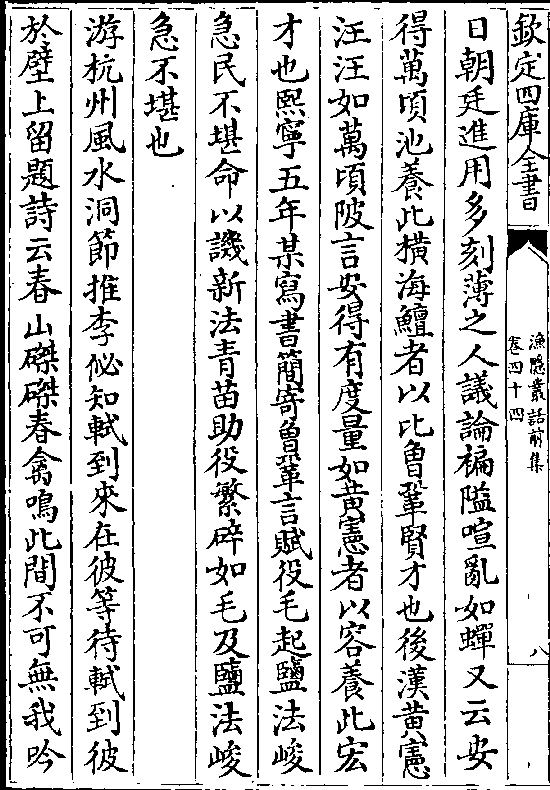 欽定四庫全書
漁隱叢話前集
卷四十四
八
日朝廷進用多刻薄之人議論褊隘喧亂如蟬又云安
得萬頃池養此橫海鱣者以比曾鞏賢才也後漢黃憲
汪汪如萬頃陂言安得有度量如黃憲者以容養此宏
才也熙寧五年某寫書簡寄曾鞏言賦役毛起鹽法峻
急民不堪命以譏新法青苗助役繁碎如毛及鹽法峻
急不堪也
游杭州風水洞節推李佖知軾到來在彼等待軾到彼
於壁上留題詩云春山磔磔春禽鳴此間不可無我吟